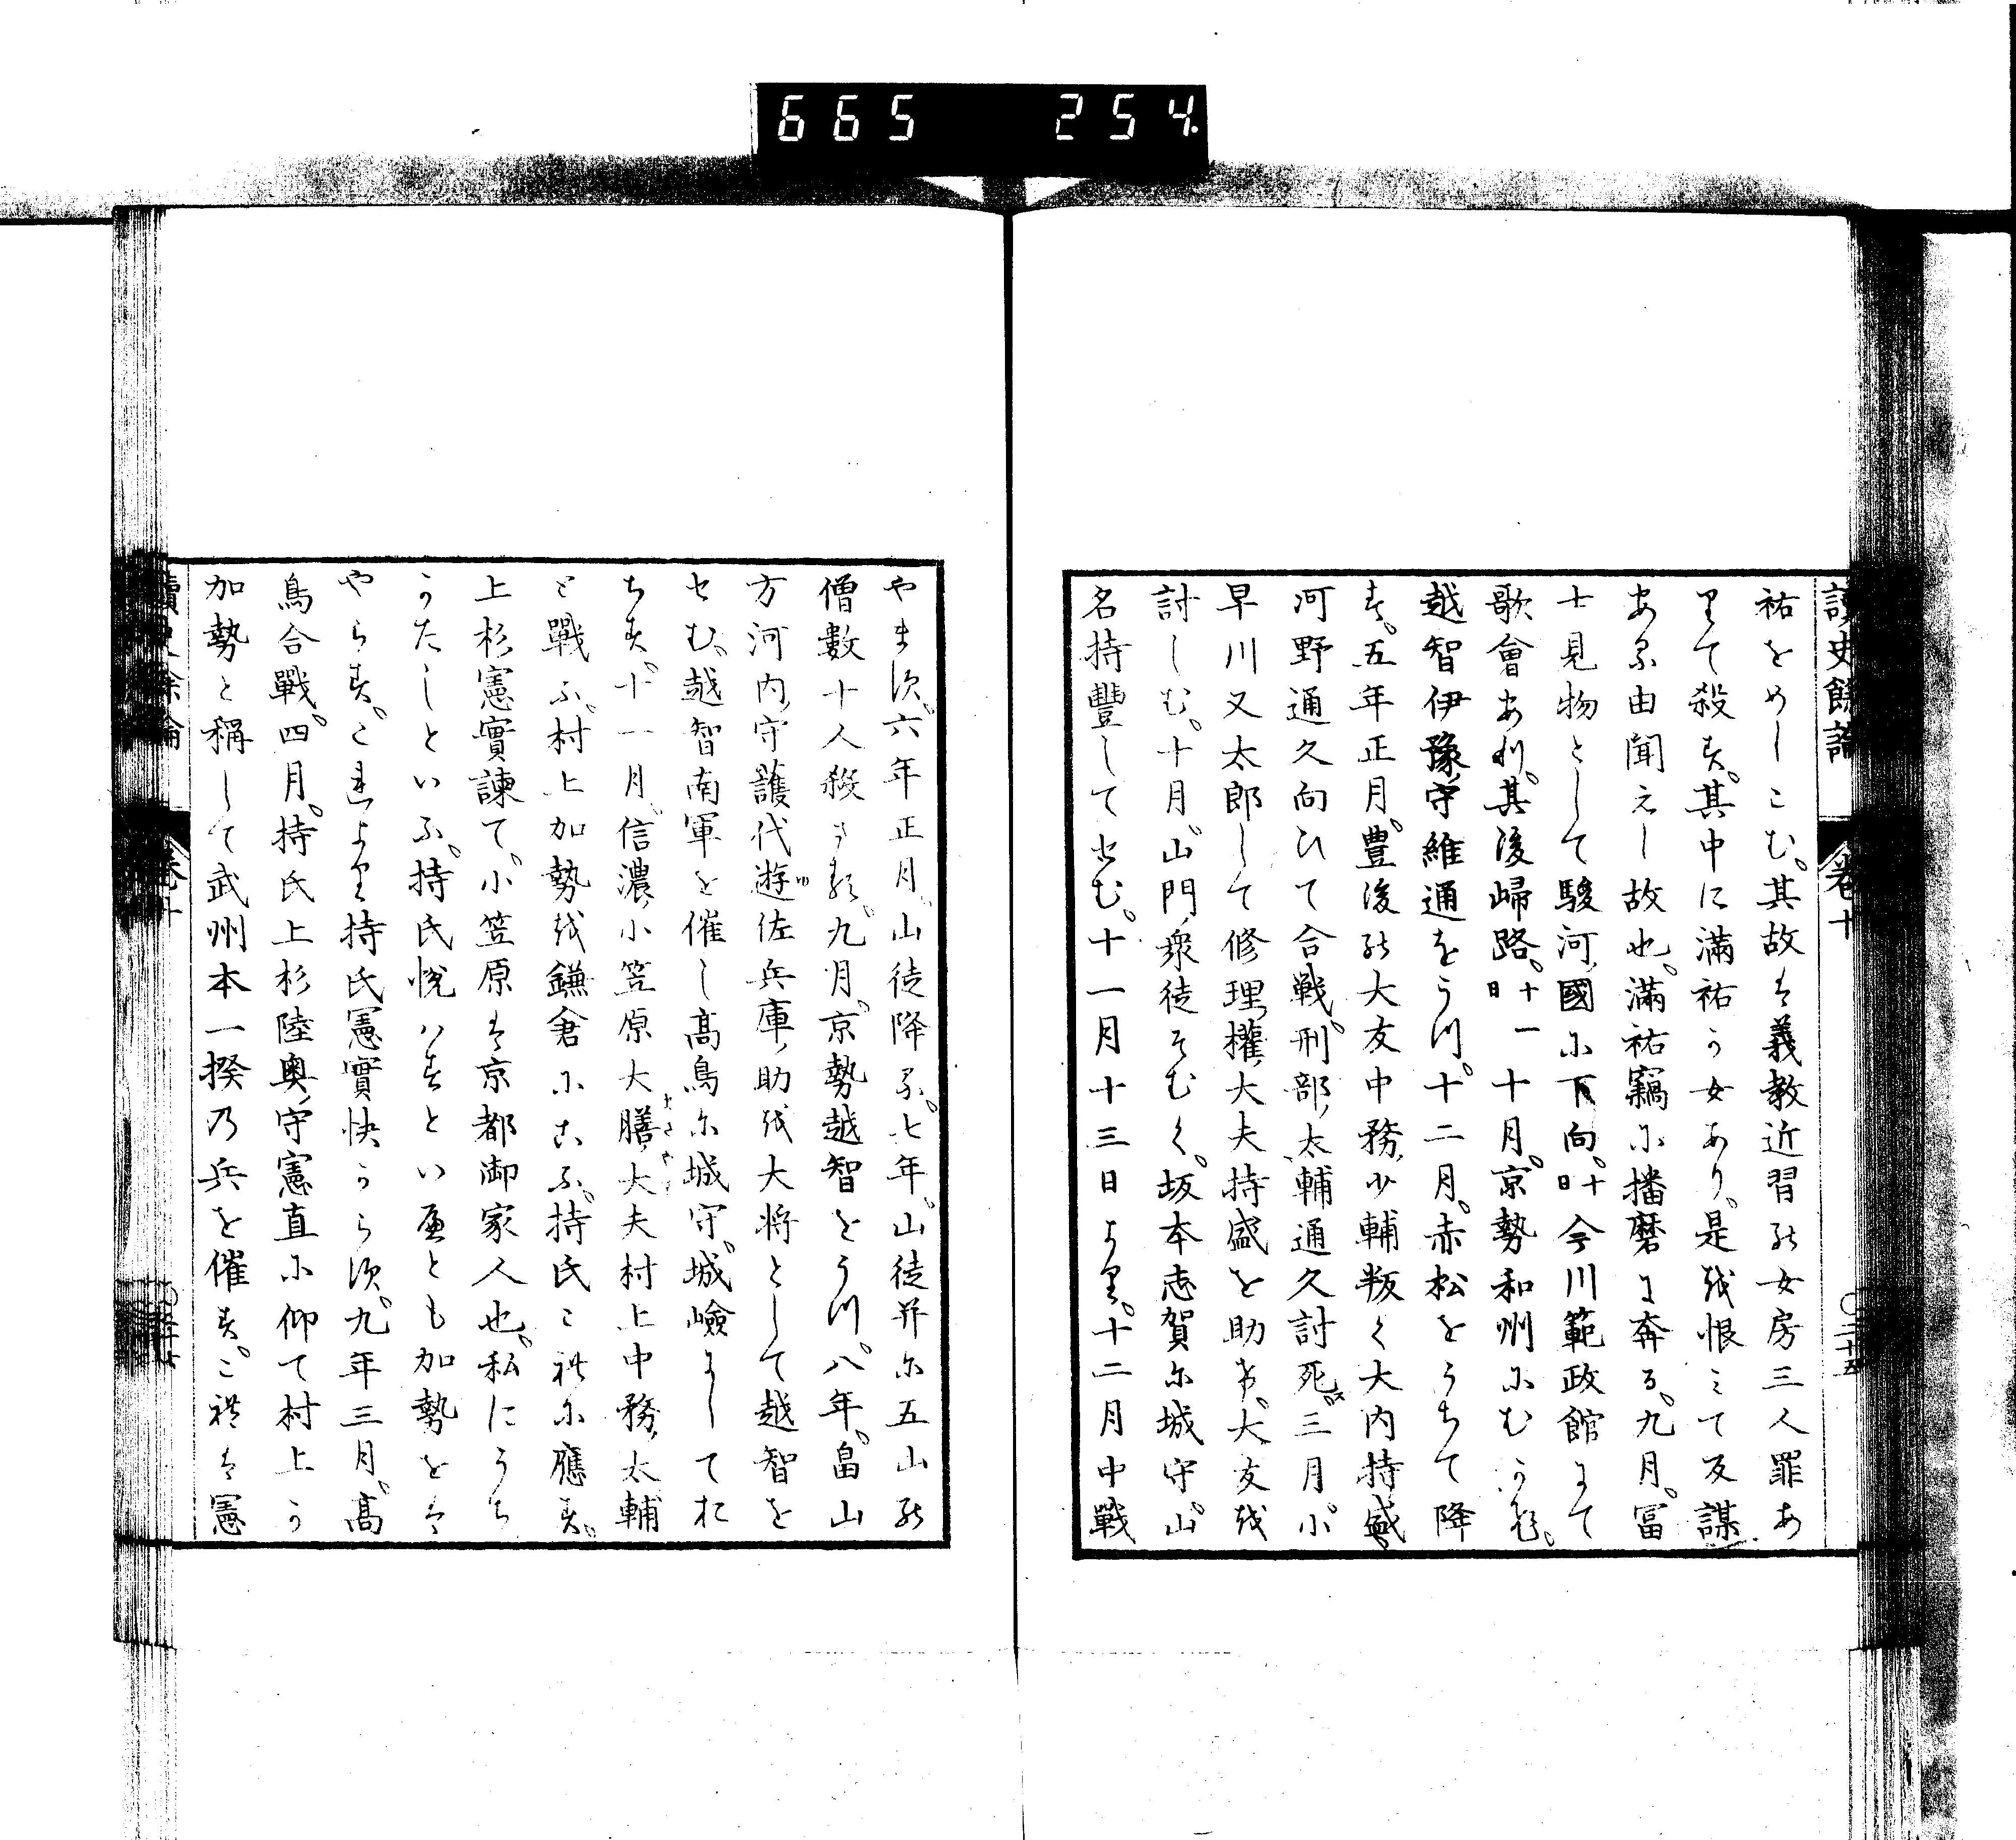 665 254
讀史餘論 卷十 〇二十五
祐をめしこむ。其故は義教近習の女房三人罪あ
りて殺す。其中に滿祐か女あり。是を恨みて反謀
ある由聞えし故也。滿祐竊に播磨に奔る。九月。冨
士見物として駿河國に下向。十日今川範政館にて
歌會あり。其後歸路。十一日十月。京勢和州にむかふ。
越智伊豫守維通をうつ。十二月。赤松をうちて降
す。五年正月。豊後の大友中務少輔叛く大内持盛
河野通久向ひて合戦。刑部太輔通久討死ス。三月。小
早川又太郎して修理權大夫持盛を助す。大友を
討しむ。十月。山門衆徒そむく。坂本志賀に城守。山
名持豐して止む。十一月十三日より。十二月中戰
やます。六年正月。山徒降る。七年。山徒并に五山の
僧數十人殺さる。九月。京勢越智をうつ。八年。畠山
方河内守護代遊佐兵庫助を大将として越智を
せむ。越智南軍を催し高鳥に城守。城嶮にしてお
ちす。十一月。信濃小笠原大膳大夫村上中務太輔
と戰ふ。村上加勢を鎌倉にこふ。持氏これに應す。
上杉憲實諫て。小笠原は京都御家人也。私にうち
かたしといふ。持氏悦はすといへとも加勢をは
やらす。これより持氏憲實快からす。九年三月。髙
鳥合戰。四月。持氏上杉陸奥守憲直に仰て村上か
加勢と稱して武州本一揆乃兵を催す。これは憲
讀史餘論 卷十